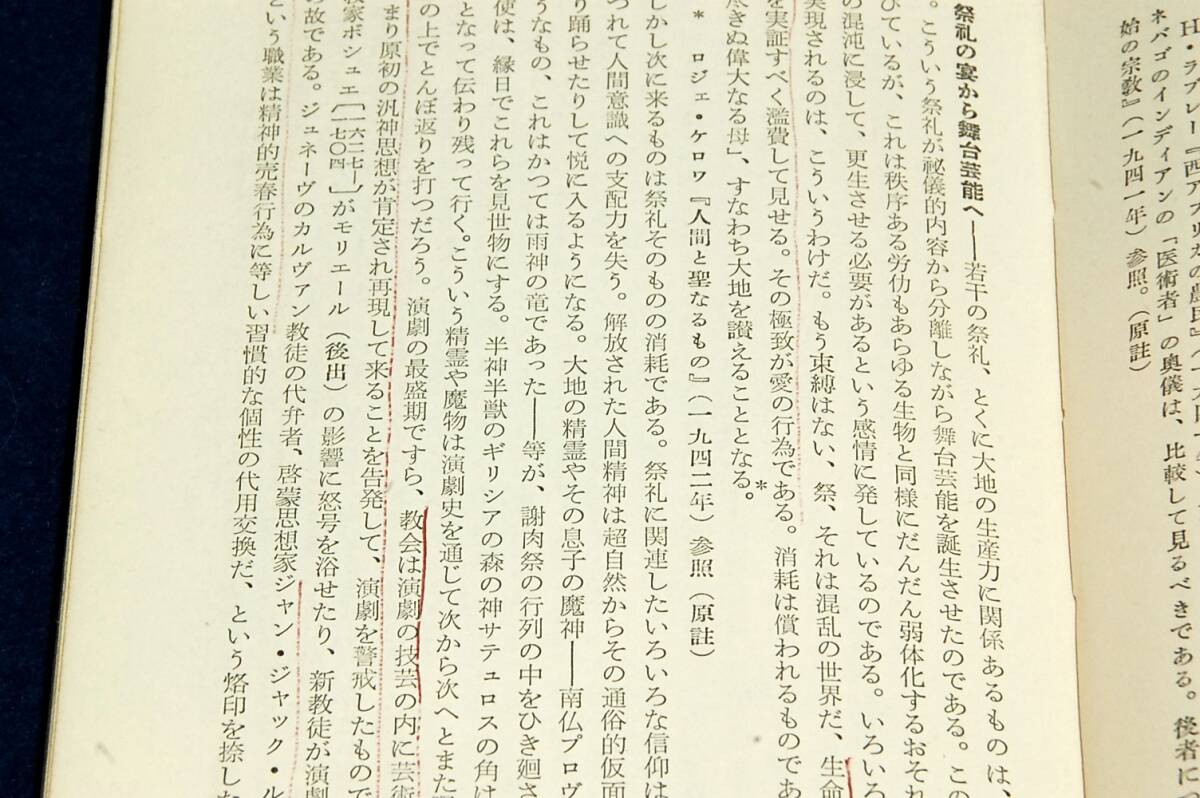 H・ラブレー『西アフリカの農民』(一九
ネバゴのインディアンの「医術者」の奥儀は、比較して見るべきである。後者に
始の宗教』(一九四一年)参照。(原註)
祭礼の宴から舞台芸能へ――若干の祭礼、とくに大地の生産力に関係あるものは、
。こういう祭礼が秘儀的内容から分離しながら舞台芸能を誕生させたのである。この
びているが、これは秩序ある労働もあらゆる生物と同様にだんだん弱体化するおそれ
の混沌に浸して、更生させる必要があるという感情に発しているのである。いろいろ
実現されるのは、こういうわけだ。もう束縛はない、祭、それは混乱の世界だ、生命
を実証すべく濫費して見せる。その極致が愛の行為である。消耗は償われるものであ
尽きぬ偉大なる母」、すなわち大地を讃えることとなる。*
* ロジェ・ケロワ『人間と聖なるもの』(一九四二年)参照(原註)
しかし次に来るものは祭礼そのものの消耗である。祭礼に関連したいろいろな信仰は
つれて人間意識への支配力を失う。解放された人間精神は超自然からその通俗的仮面
り踊らせたりして悦に入るようになる。大地の精霊やその息子の魔神――南仏プロヴ
うなもの、これはかつては雨神の竜であった――等が、謝肉祭の行列の中をひき廻さ
使は、縁日でこれらを見世物にする。半神半獣のギリシアの森の神サテュロスの角は
となって伝わり残って行く。こういう精霊や魔物は演劇史を通じて次から次へとまた
の上でとんぼ返りを打つだろう。演劇の最盛期ですら、教会は演劇の技芸の内に芸術
まり原初の汎神思想が肯定され再現して来ることを告発して、演劇を警戒したもので
教家ボシュエ〔一六二七―一七〇四〕がモリエール(後出)の影響に怒号を浴せたり、新教徒が演劇
の故である。ジュネーヴのカルヴァン教徒の代弁者、啓蒙思想家ジャン・ジャック・ル
という職業は精神的売春行為に等しい習慣的な個性の代用交換だ、という烙印を捺した